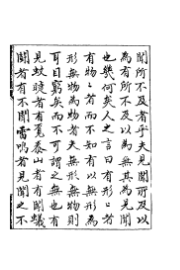 聞所不及者乎夫見聞所及以
為有所不及以為無其為見聞
也幾何矣人之言曰有形〻者
有物〻者而不知有以無形為
形無物為物者夫無形無物則
可目窮矣而不可謂之無也有
見蚊睫者有泰山者有聞蟻
者有不聞雷鳴者見聞之不